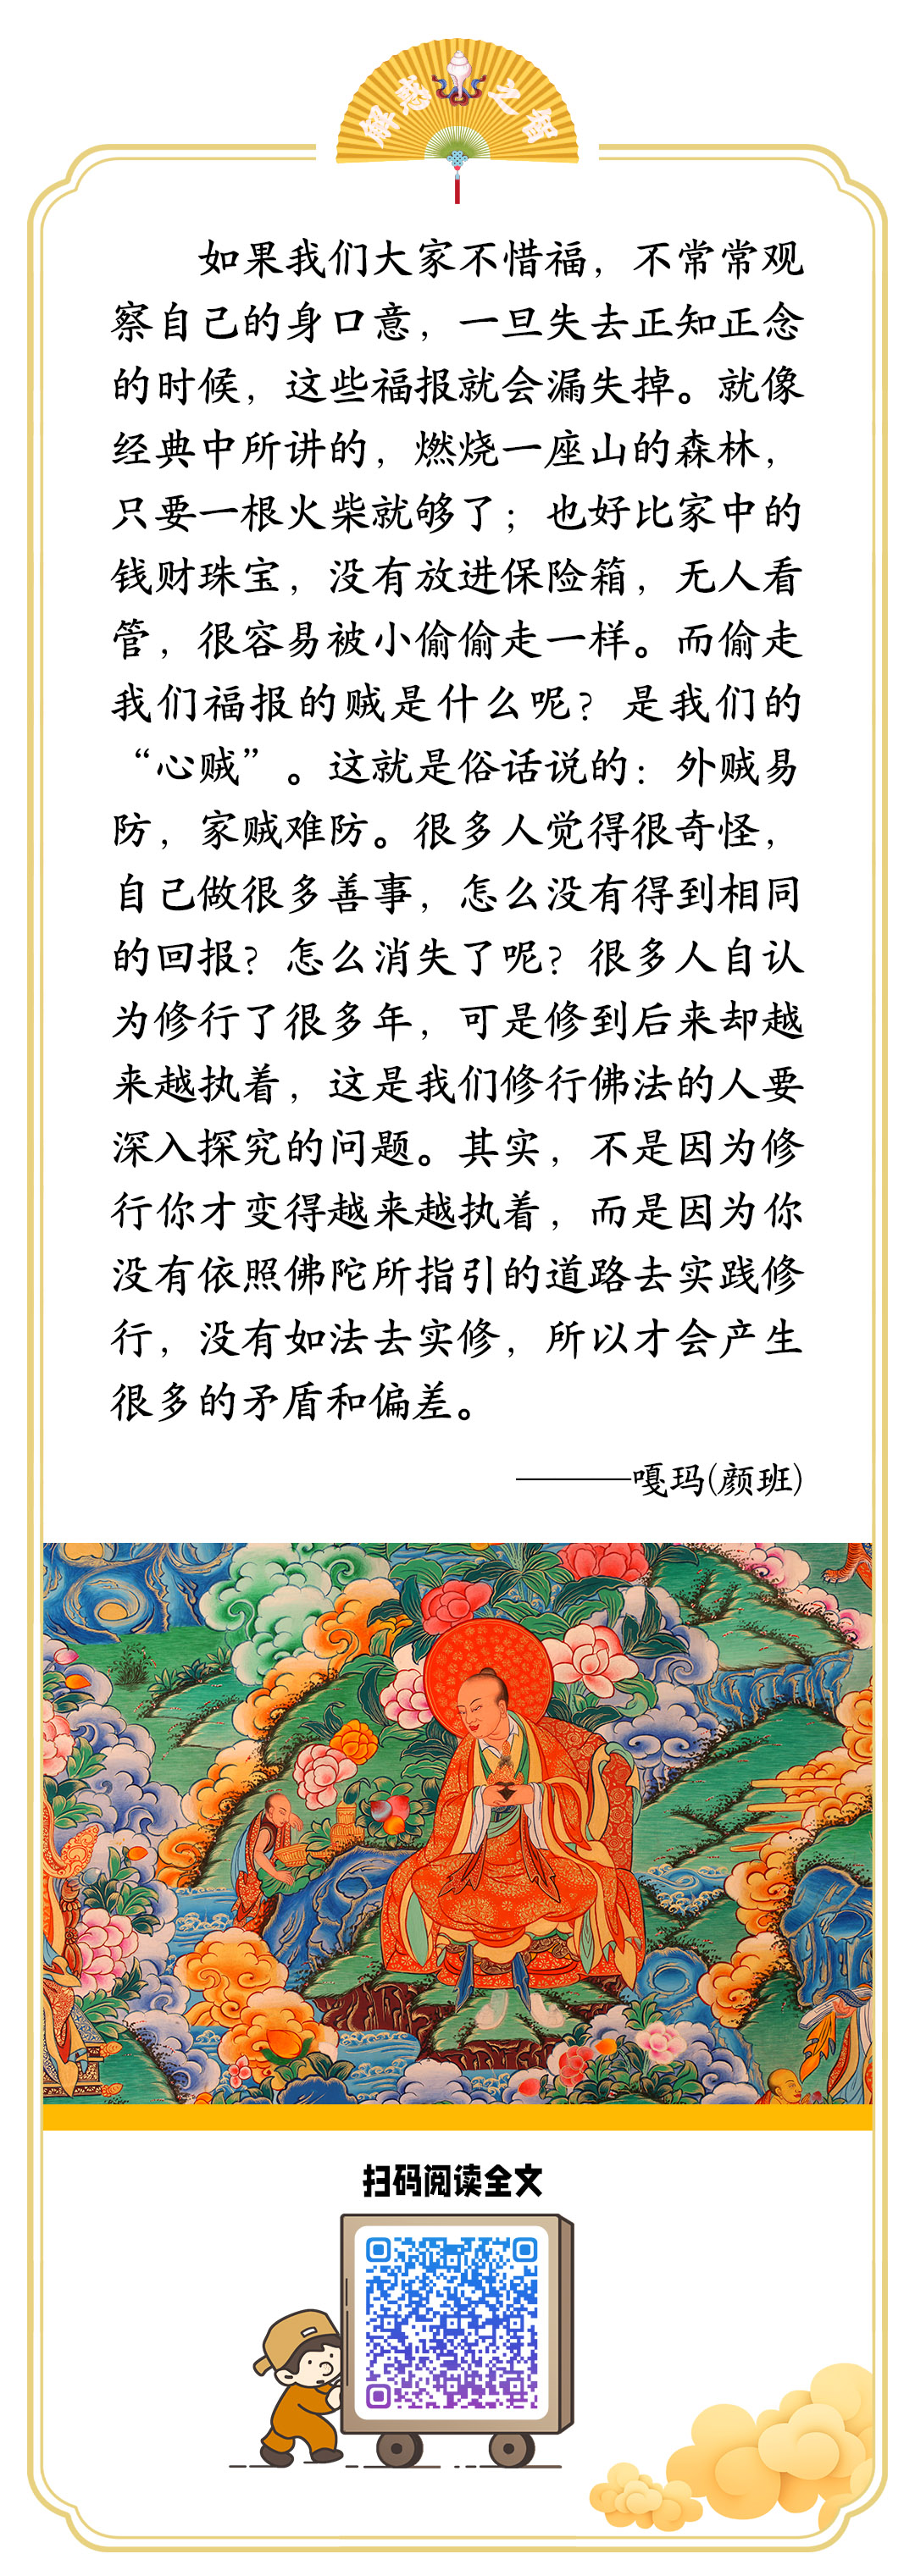 解惑之智
如果我们大家不惜福，不常常观
察自己的身口意，一旦失去正知正念
的时候，这些福报就会漏失掉。就像
经典中所讲的，燃烧一座山的森林，
只要一根火柴就够了；也好比家中的
钱财珠宝，没有放进保险箱，无人看
管，很容易被小偷偷走一样。而偷走
我们福报的贼是什么呢？是我们的
“心贼”。这就是俗话说的：外贼易
防，家贼难防。很多人觉得很奇怪，
自己做很多善事，怎么没有得到相同
的回报？怎么消失了呢？很多人自认
为修行了很多年，可是修到后来却越
来越执着，这是我们修行佛法的人要
深入探究的问题。其实，不是因为修
行你才变得越来越执着，而是因为你
没有依照佛陀所指引的道路去实践修
行，没有如法去实修，所以才会产生
很多的矛盾和偏差。
———嘎玛(颜班)
扫码阅读全文